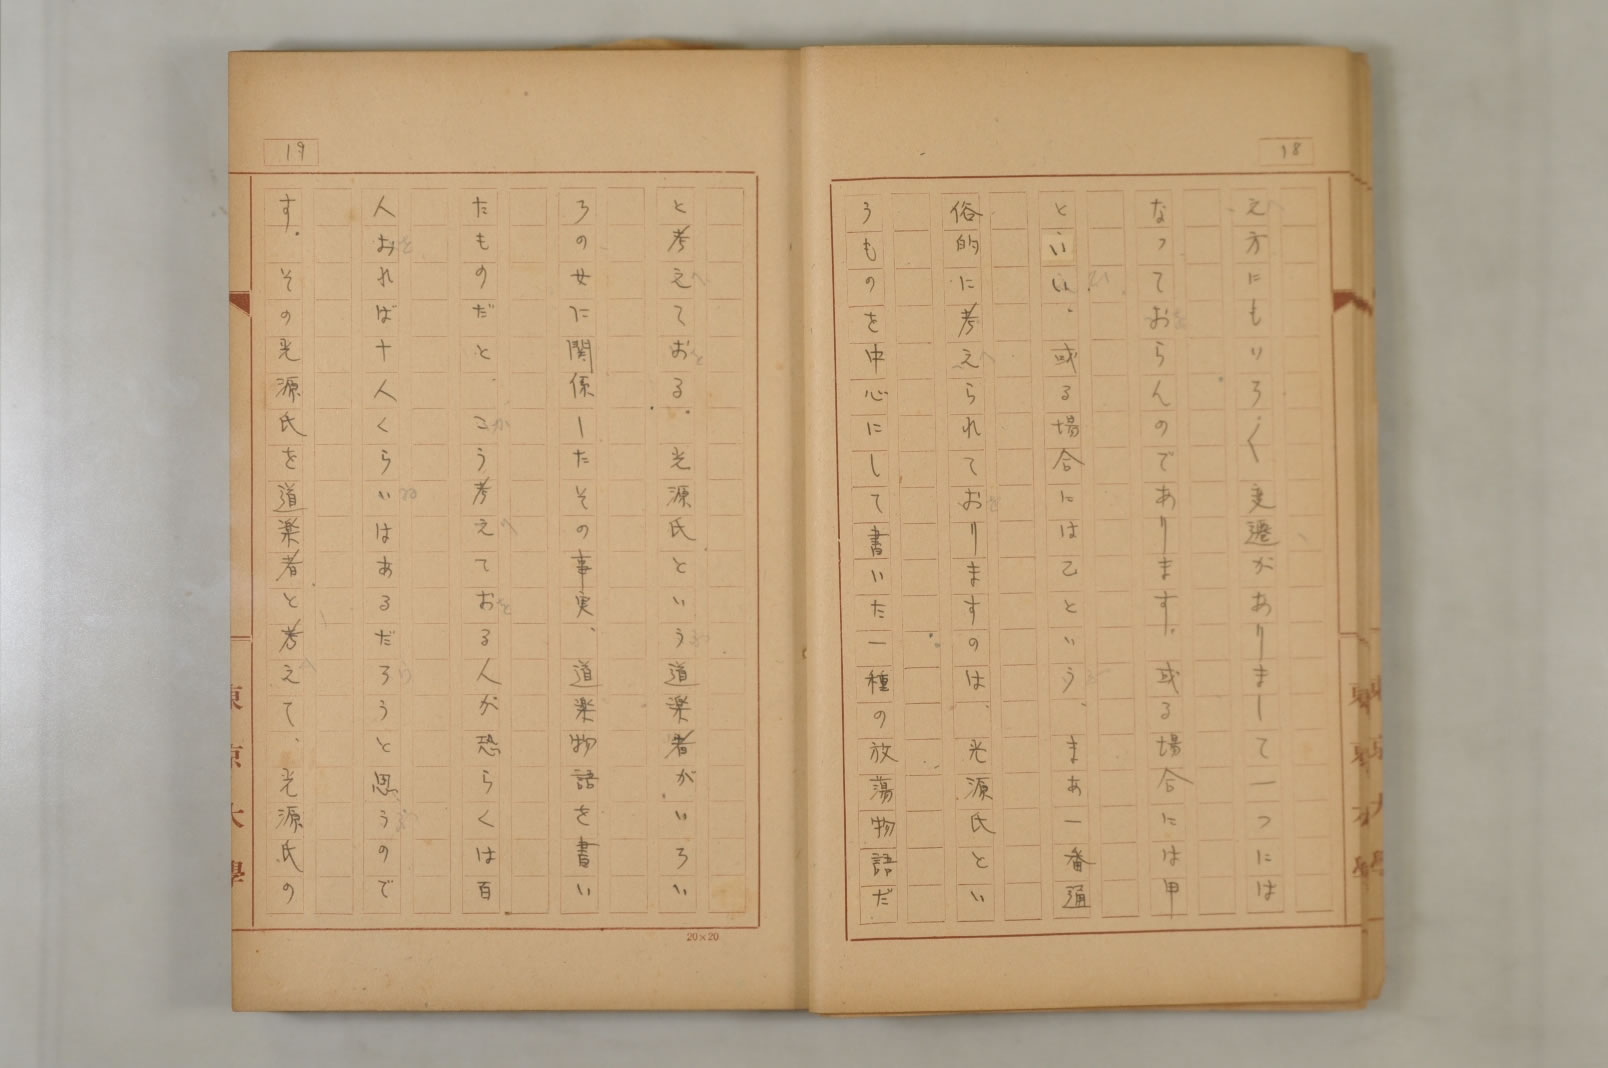 18
え方にもいろ〱変遷がありまして一つには
なっておらんのであります。或る場合には甲
といい、或る場合には乙という、まあ一番通
俗的に考えられておりますのは、光源氏とい
うものを中心にして書いた一種の放蕩物語だ
19
と考えておる。光源氏という道楽者がいろい
ろの女に関係したその事実、道楽物語を書い
たものだと、こう考えておる人が恐らくは百
人おれば十人くらいはあるだろうと思うので
す。その光源氏を道楽者と考えて、光源氏の
20×20
東京大學